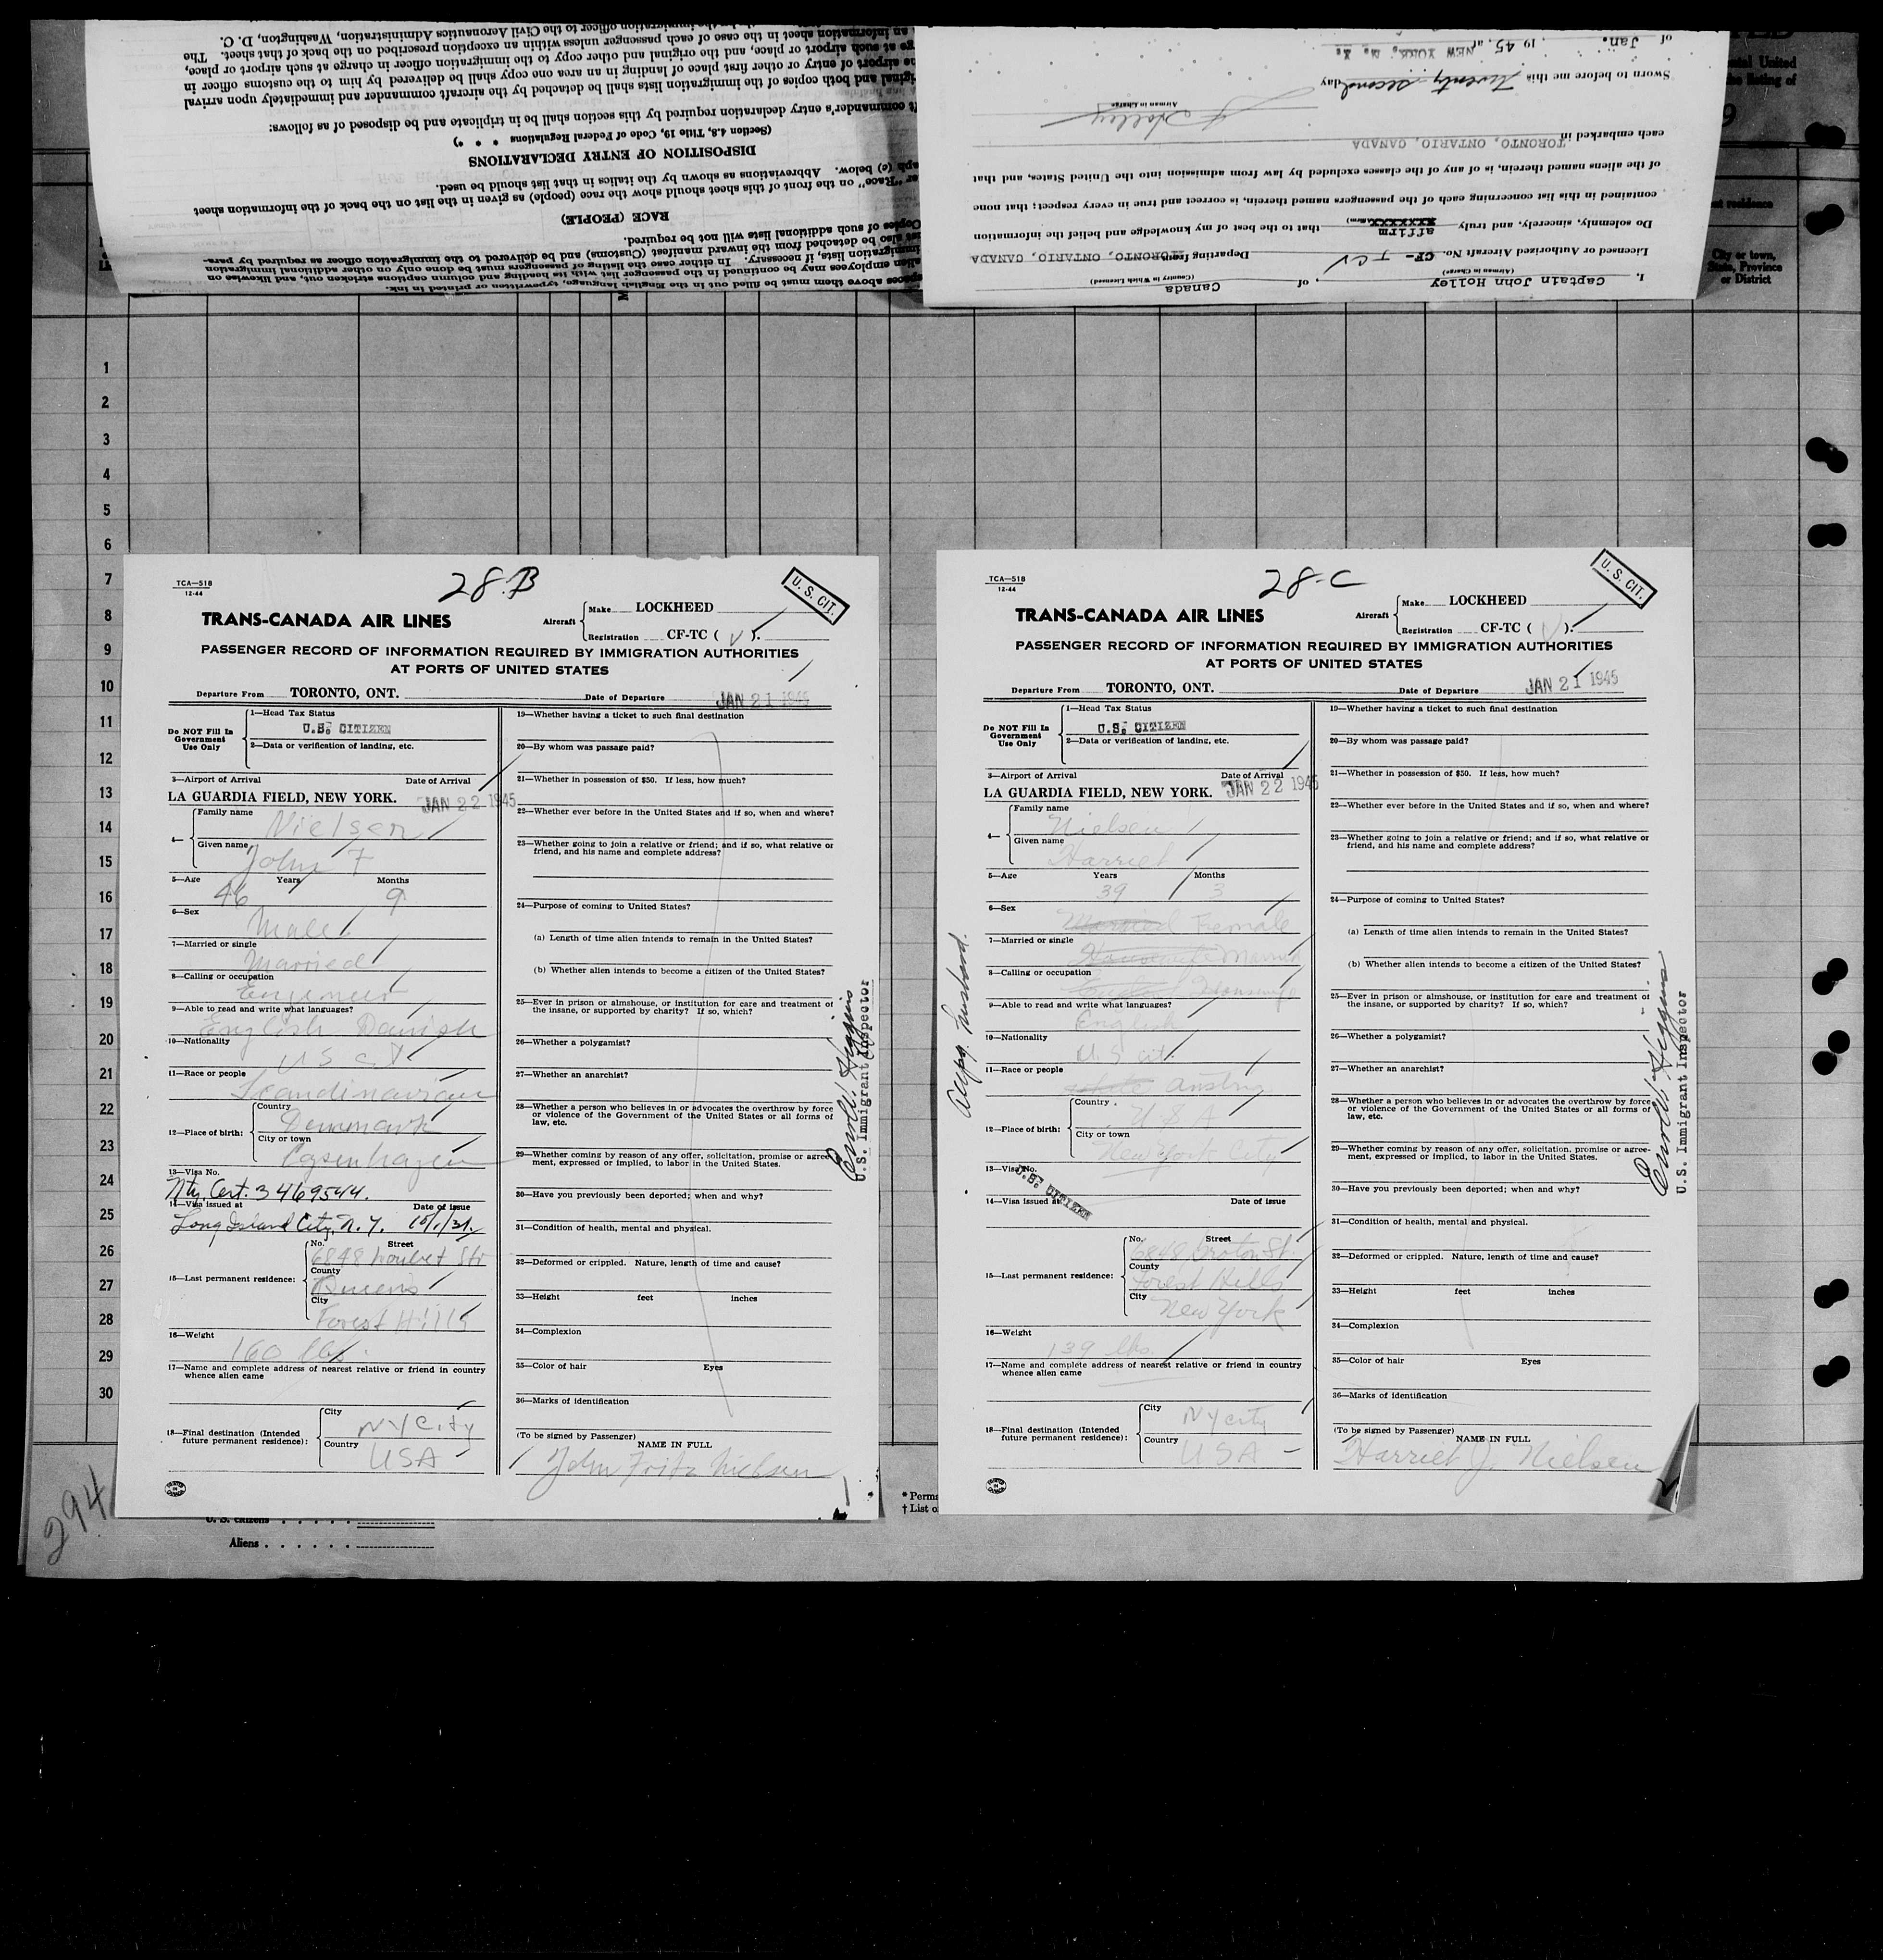 an information sheet in the case of each passenger unless within an exception prescribed on the back of that sheet. The
ge at such airport or place, and the original and other copy to the immigration officer in charge at such airport or place,
ne airport of entry or other first place of landing in an area one copy shall be delivered by him to the customs officer in
iginal and both copies of the immigration lists shall be detached by the aircraft commander and immediately upon arrival
ft commander's entry declaration required by this section shall be in triplicate and be disposed of as follows:
(Section 4.8, Title 19, Code of Federal Regulations * * *)
DISPOSITION OF ENTRY DECLARATIONS
aph (e) below. Abbreviations as shown by the italics in that list should be used.
er "Race" on the front of this sheet should show the race (people) as given in the list on the back of the information sheet
RACE (PEOPLE)
Copies of such additional lists will not be required.
ust also be detached from the inward manifest (Customs) and be delivered to the immigration officer as required by para-
immigration lists, if necessary. In either case the listing of passengers must be done only on other additional immigration
alien employees may be continued in the passenger list with its heading and column captions stricken out, and likewise on
paces above them must be filled out in the English language, typewritten or printed in ink.
I, Captain John Holley, of Canada
(Airman in Charge) (Country in Which Licensed)
Licensed or Authorized Aircraft No. CF- TCV Departing from TORONTO, ONTARIO, CANADA
Do solemnly, sincerely, and truly affirm that to the best of my knowledge and belief the information
contained in this list concerning each of the passengers named therein, is correct and true in every respect; that none
of the aliens named therein, is of any of the classes excluded by law from admission into the United States, and that
each embarked in TORONTO, ONTARIO, CANADA
J Holley
Airman in Charge
Sworn to before me this Twenty second day
of Jan. , 19 45, at NEW YORK, N. Y.
City or town,
State, Province
or District
1
2
3
4
5
6
7
8
9
10
11
12
13
14
15
16
17
18
19
20
21
22
23
24
25
26
27
28
29
30
TCA—518
12-44
28-B
U. S. CIT.
TRANS-CANADA AIR LINES
Aircraft
Make LOCKHEED
Registration CF-TC ( V ).
PASSENGER RECORD OF INFORMATION REQUIRED BY IMMIGRATION AUTHORITIES
AT PORTS OF UNITED STATES
Departure From TORONTO, ONT. Date of Departure JAN 21 1945
Do NOT Fill In
Government
Use Only
1—Head Tax Status
U.S. CITIZEN
2—Data or verification of landing, etc.
3—Airport of Arrival Date of Arrival
LA GUARDIA FIELD, NEW YORK. JAN 22 1945
4—
Family name
Nielsen
Given name
John F
5—Age Years Months
46 9
6—Sex
Male
7—Married or single
Married
8—Calling or occupation
Engineer
9—Able to read and write what languages?
English Danish
10—Nationality
US cit
11—Race or people
Scandinavian
12—Place of birth:
Country
Denmark
City or town
Copenhagen
13—Visa No.
Nty. Cert. 3469544.
14—Visa issued at Date of issue
Long Island City, N.Y. 10/1/31
15—Last permanent residence:
No. Street
6848
County
Queens
City
Forest Hills
16—Weight
160 lbs.
17—Name and complete address of nearest relative or friend in country
whence alien came
18—Final destination (Intended
future permanent residence):
City
NY City
Country
USA
19—Whether having a ticket to such final destination
20—By whom was passage paid?
21—Whether in possession of $50. If less, how much?
22—Whether ever before in the United States and if so, when and where?
23—Whether going to join a relative or friend; and if so, what relative or
friend, and his name and complete address?
24—Purpose of coming to United States?
(a) Length of time alien intends to remain in the United States?
(b) Whether alien intends to become a citizen of the United States?
25—Ever in prison or almshouse, or institution for care and treatment of
the insane, or supported by charity? If so, which?
26—Whether a polygamist?
27—Whether an anarchist?
28—Whether a person who believes in or advocates the overthrow by force
or violence of the Government of the United States or all forms of
law, etc.
29—Whether coming by reason of any offer, solicitation, promise or agree-
ment, expressed or implied, to labor in the United States.
30—Have you previously been deported; when and why?
31—Condition of health, mental and physical.
32—Deformed or crippled. Nature, length of time and cause?
33—Height feet inches
34—Complexion
35—Color of hair Eyes
36—Marks of identification
(To be signed by Passenger) NAME IN FULL
John Fritz Nielsen
U.S. Immigrant Inspector
TCA—518
12-44
28-C
U. S. CIT.
TRANS-CANADA AIR LINES
Aircraft
Make LOCKHEED
Registration CF-TC ( V ).
PASSENGER RECORD OF INFORMATION REQUIRED BY IMMIGRATION AUTHORITIES
AT PORTS OF UNITED STATES
Departure From TORONTO, ONT. Date of Departure JAN 21 1945
Do NOT Fill In
Government
Use Only
1—Head Tax Status
U.S. CITIZEN
2—Data or verification of landing, etc.
3—Airport of Arrival Date of Arrival
LA GUARDIA FIELD, NEW YORK. JAN 22 1945
4—
Family name
Nielsen
Given name
Harriet
5—Age Years Months
39 3
6—Sex
Married Female
7—Married or single
Housewife Married
8—Calling or occupation
English Housewife
9—Able to read and write what languages?
English
10—Nationality
U.S cit.
11—Race or people
white
12—Place of birth:
Country
U S A
City or town
New York City
13—Visa No.
U.S. CITIZEN
14—Visa issued at Date of issue
15—Last permanent residence:
No. Street
6848 Groton St.
County
Forest Hills
City
New York
16—Weight
139 lbs.
17—Name and complete address of nearest relative or friend in country
whence alien came
18—Final destination (Intended
future permanent residence):
City
NY city
Country
USA
19—Whether having a ticket to such final destination
20—By whom was passage paid?
21—Whether in possession of $50. If less, how much?
22—Whether ever before in the United States and if so, when and where?
23—Whether going to join a relative or friend; and if so, what relative or
friend, and his name and complete address?
24—Purpose of coming to United States?
(a) Length of time alien intends to remain in the United States?
(b) Whether alien intends to become a citizen of the United States?
25—Ever in prison or almshouse, or institution for care and treatment of
the insane, or supported by charity? If so, which?
26—Whether a polygamist?
27—Whether an anarchist?
28—Whether a person who believes in or advocates the overthrow by force
or violence of the Government of the United States or all forms of
law, etc.
29—Whether coming by reason of any offer, solicitation, promise or agree-
ment, expressed or implied, to labor in the United States.
30—Have you previously been deported; when and why?
31—Condition of health, mental and physical.
32—Deformed or crippled. Nature, length of time and cause?
33—Height feet inches
34—Complexion
35—Color of hair Eyes
36—Marks of identification
(To be signed by Passenger) NAME IN FULL
Harriet J. Nielsen
husband.
U.S. Immigrant Inspector
294
U. S. citizens . . . . .
Aliens . . . . . .
* Perma
† List o